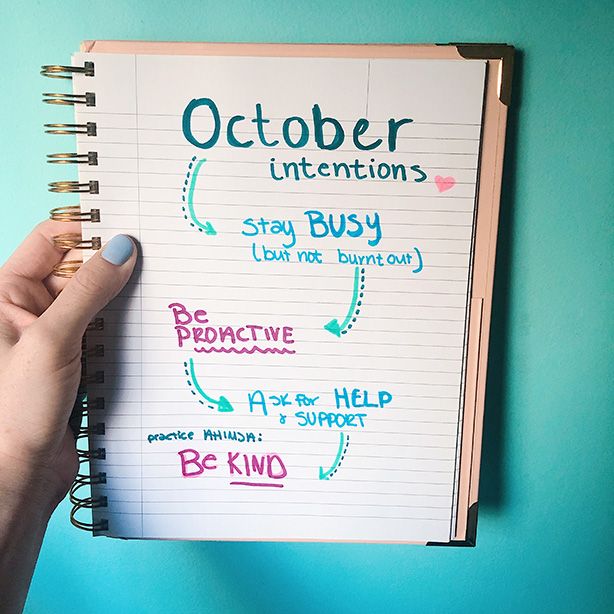 October
intentions
stay BUSY
(but not burnt out)
Be
PROACTIVE
Ask for HELP
& SUPPORT
practice AHIMSA:
Be KIND